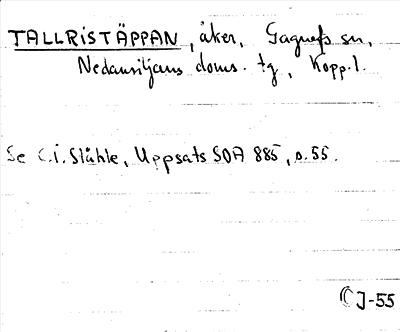 TALLRISTÄPPAN, åker, Gagnefs sn,
Nedansiljans doms. tg, Kopp. l.
Se C.I. Ståhle, Uppsats SOA 885, s. 55.
CJ-55